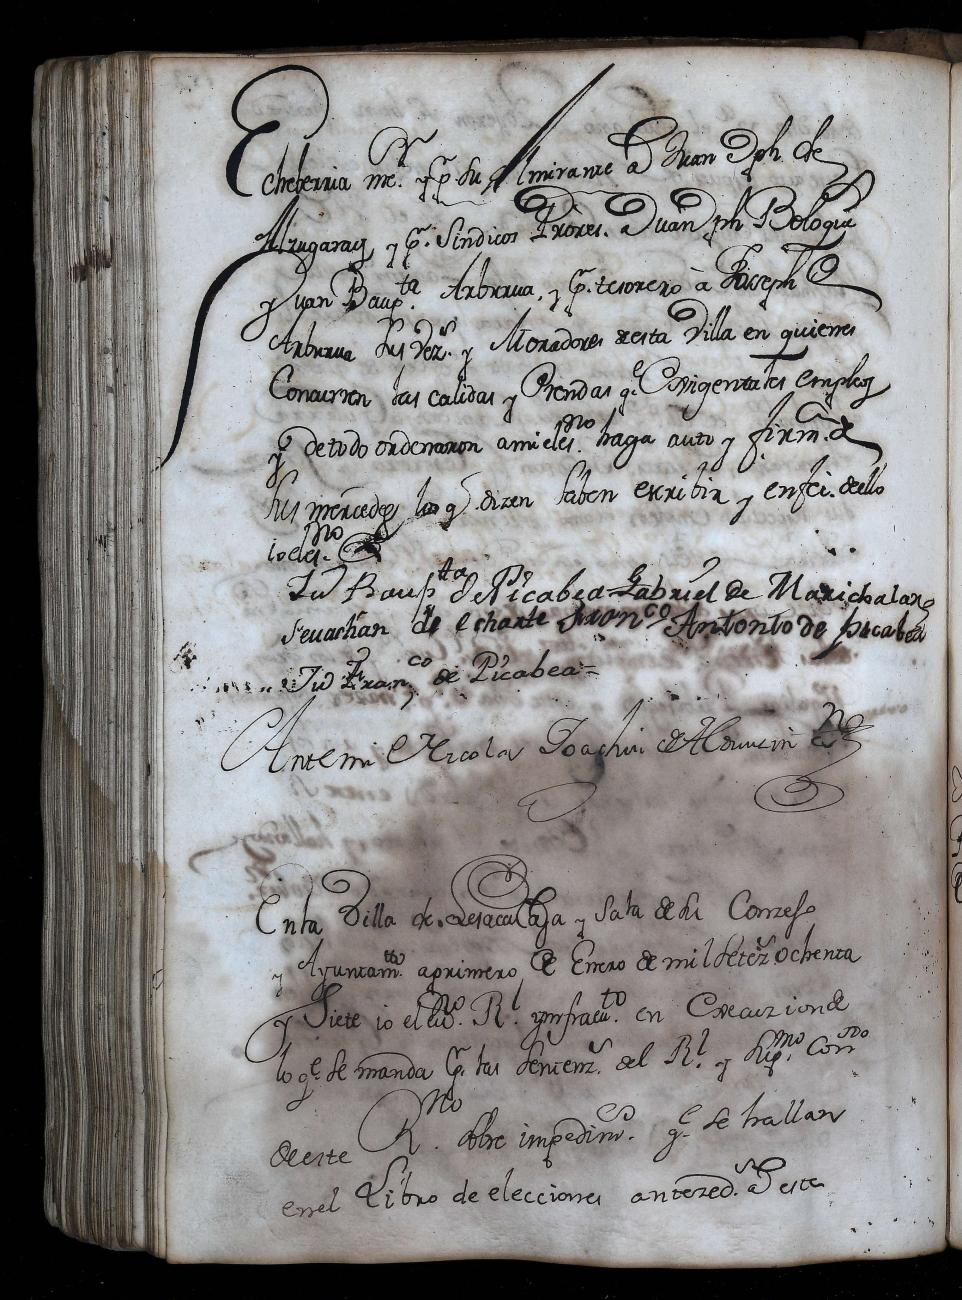 Echeberria mer. y pr. su Almirante a Juan Jph. de
Arrugaray, y pr. Sindicos Prores. a Juan Jph Beloqui
y Juan Bapta. Arburua, y pr. tesorero à Joseph
Arburua sus vezs. y Moradores desta Villa en quienes
Concurren las calidas y Prendas qe. Exigen tales empleos
y de todo ordenaron a mi el esno. haga auto y firmn. de
sus mercedes los q dizen saben escribir y en fei. dello
io el esno.
Jn Baupta de Picabea Gabriel de Marichalar
Sevastian de Echarte Franco Antonio de Picabea
Jn Franco de Picabea =
Antemi Nicolas Joachin de Esno
En la Villa de Lesaca Casa y Sala de su Conzejo
y Ayuntamto. a primero de Enero de mil setezs. ochenta
y Siete io el esno. Rl. ynfraeto. en Execuzion de
lo qe. se manda pr. las Sentenzs. del Rl. y Supmo. Conso
de este Rno. sobre impedimtos. qe. se hallan
en el Libro de elecciones antezeds. a este